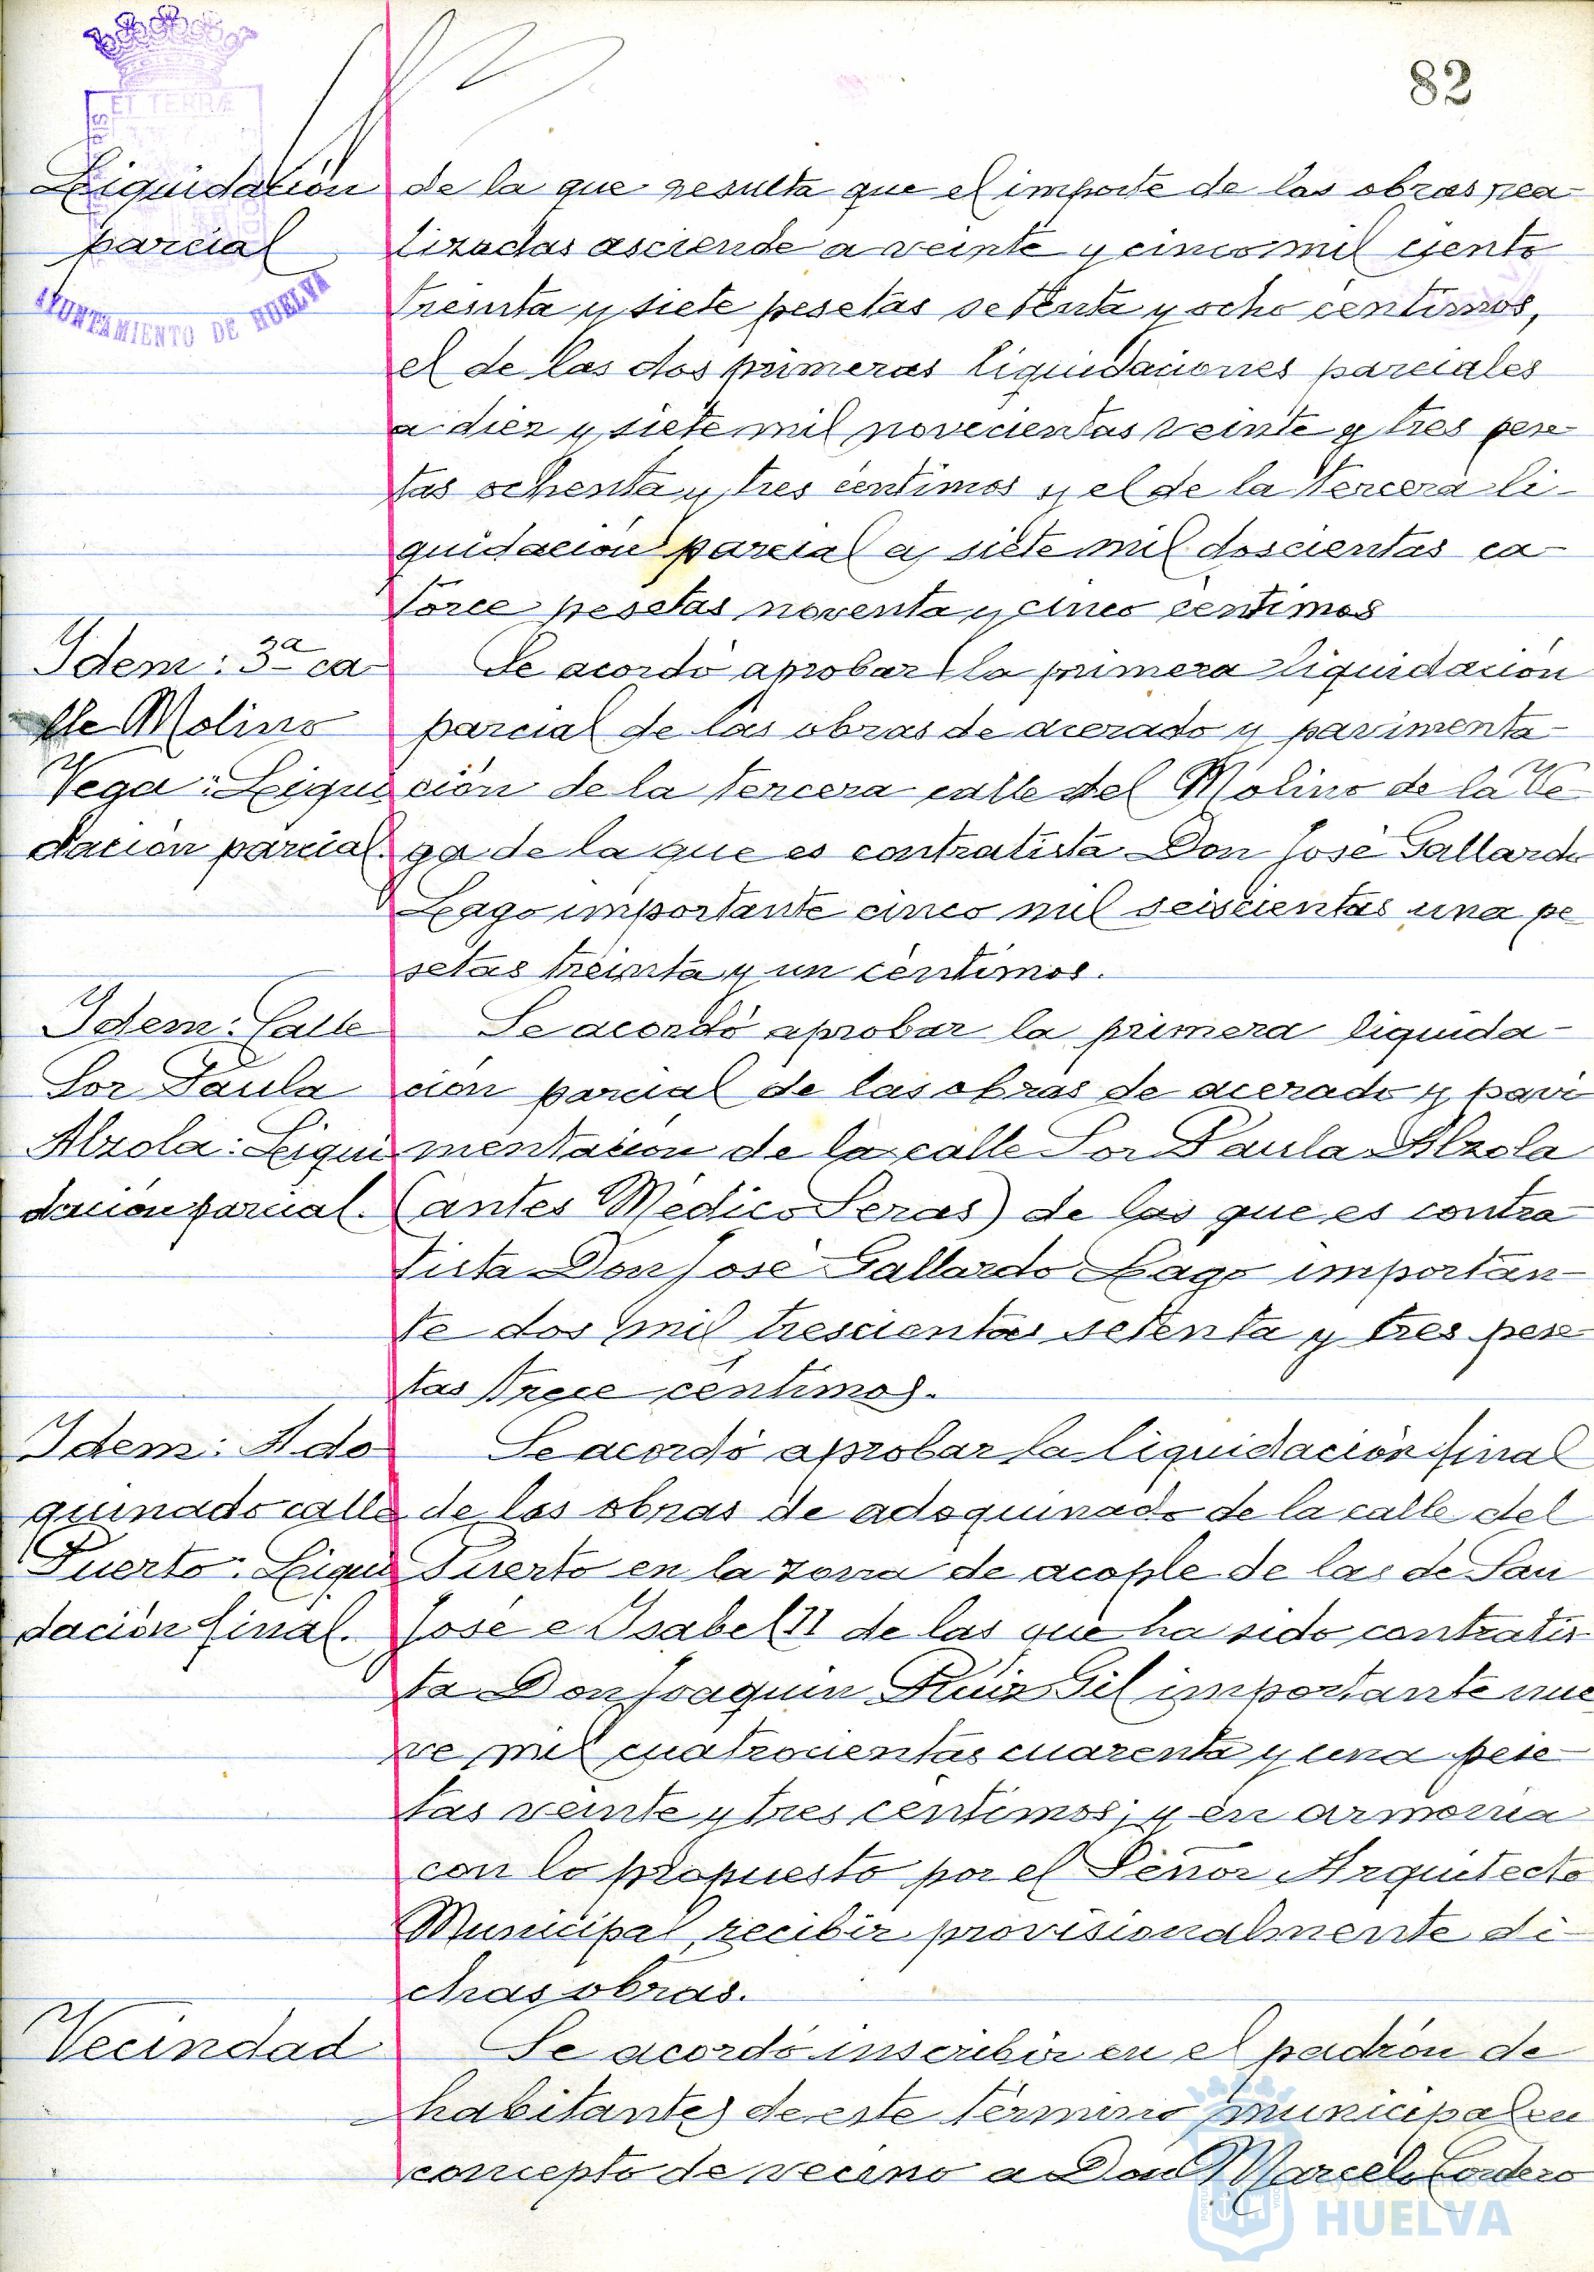 82
ET TERRÆ
AYUNTAMIENTO DE HUELVA
Liquidación
parcial
de la que resulta que el importe de las obras rea-
lizadas asciende a veinte y cinco mil ciento
treinta y siete pesetas setenta y ocho centimos,
el de las dos primeras liquidaciones parciales
a diez y siete mil novecientas veinte y tres pese-
tas ochenta y tres centimos y el de la tercera li-
quidación parcial a siete mil doscientas ca-
torce pesetas noventa y cinco centimos
Idem: 3ª ca-
lle Molino
Vega: Liqui
dación parcial.
Se acordó aprobar la primera liquidación
parcial de las obras de acerado y pavimenta-
ción de la tercera calle del Molino de la Ve-
ga de la que es contratista Don José Gallardo
Lago importante cinco mil seiscientas una pe
setas treinta y un céntimos.
Idem: Calle
Sor Paula
Alzola: Liqui
dación parcial.
Se acordó aprobar la primera liquida-
ción parcial de las obras de acerado y pavi
mentación de la calle Sor Paula Alzola
(antes Medico Seras) de las que es contra
tista Don José Gallardo Lago importan-
te dos mil trescientas setenta y tres pese
tas trece centimos.
Idem: Ado
quinado calle
Puerto: Liqui
dación final.
Se acordó aprobar la liquidación final
de las obras de adoquinado de la calle del
Puerto en la zona de acople de las de San
José e Isabel II de las que ha sido contratis-
ta Don Joaquin Ruiz Gil importante nue
ve mil cuatrocientas cuarenta y una pese-
tas veinte y tres centimos; y en armonia
con lo propuesto por el Señor Arquitecto
Municipal, recibir provisionalmente di-
chas obras.
Vecindad
Se acordó inscribir en el padrón de
habitantes de este término municipal en
concepto de vecino a Don Marcelo Cordero
Ayuntamiento de
HUELVA